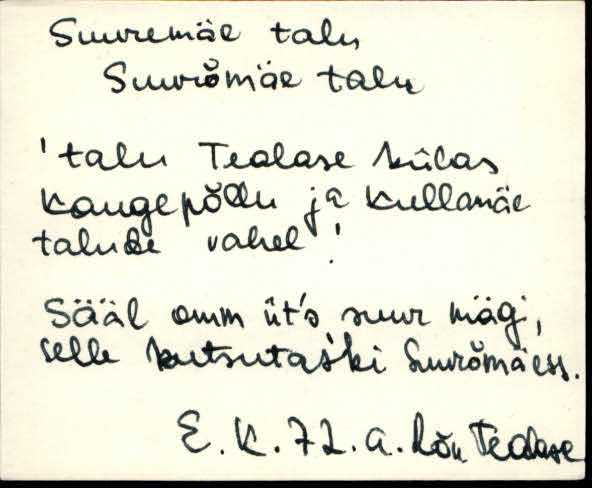 Suuremäe talu
Suurõmäe talu
'talu Tealase külas
Kaugepõllu ja Kullamäe
talude vahel'
Sääl omm üt's suur mägi,
selle kutsutaśki Suurõmäess.
E. K. 72. a. Rõu Tealase